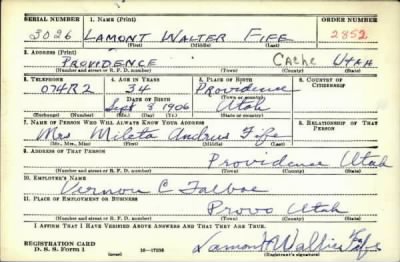 SERIAL NUMBER 1. NAME (Print) ORDER NUMBER
3026 LAMONT WALTER FIFE 2852
(First) (Middle) (Last)
2. ADDRESS (Print)
PROVIDENCE CACHE UTAH
(Number and street or R. F. D. number) (Town) (County) (State)
3. TELEPHONE 4. AGE IN YEARS 5. PLACE OF BIRTH 6. COUNTRY OF CITIZENSHIP
074R2 34 Providence
DATE OF BIRTH (Town or county)
Sept 3 1906 Utah
(Mo.) (Day) (Yr.) (State or country)
7. NAME OF PERSON WHO WILL ALWAYS KNOW YOUR ADDRESS 8. RELATIONSHIP OF THAT PERSON
Mrs Mileta Andrus Fife
(Mr., Mrs., Miss) (First) (Middle) (Last)
9. ADDRESS OF THAT PERSON
Providence Utah
(Number and street or R. F. D. number) (Town) (County) (State)
10. EMPLOYER'S NAME
Vernon C
11. PLACE OF EMPLOYMENT OR BUSINESS
Provo Utah
(Number and street or R. F. D. number) (Town) (County) (State)
I AFFIRM THAT I HAVE VERIFIED ABOVE ANSWERS AND THAT THEY ARE TRUE.
REGISTRATION CARD
D. S. S. Form 1 (over) Lamont Walter Fife
(Registrant's signature)